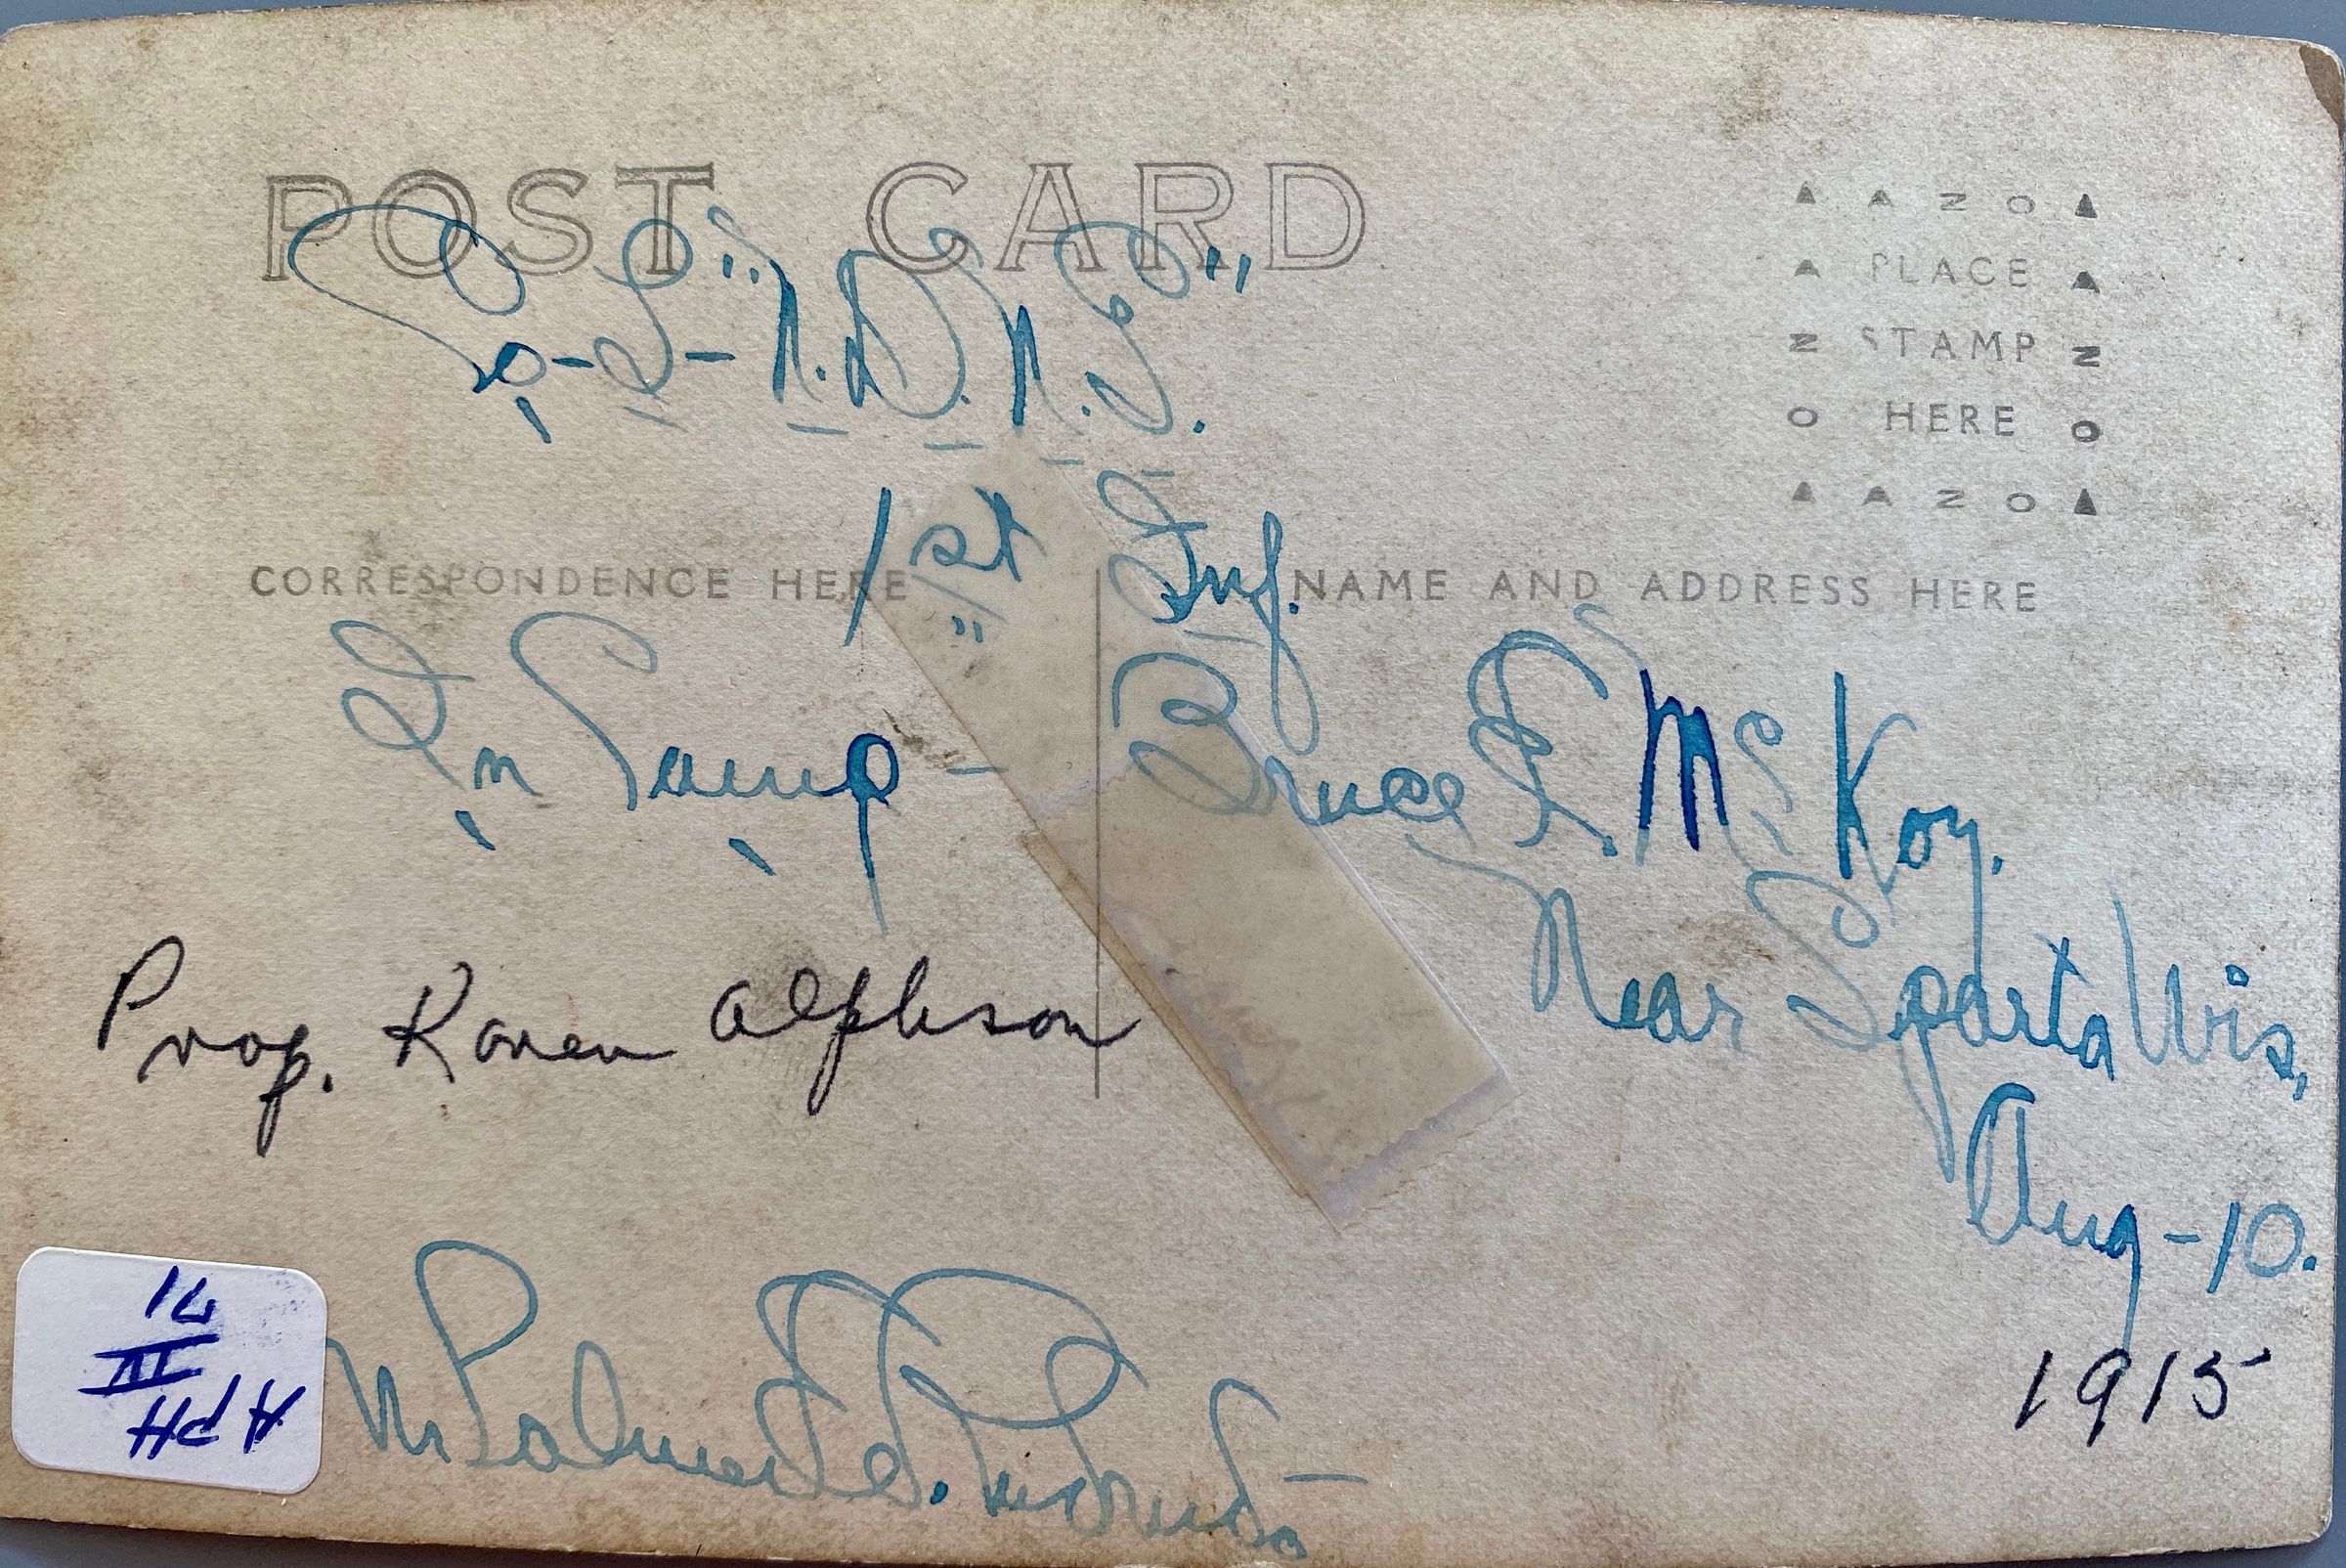 POST CARD
Co-I-"N.D.N.G."
1st Inf.
AZO
PLACE
STAMP
HERE
AZO
CORRESPONDENCE HERE
NAME AND ADDRESS HERE
In Camp - Bruce E. McKoy.
Near Sparta Wis,
Aug-10.
1915
Prop. Karen Alphson
Palmer
71
IV
APH